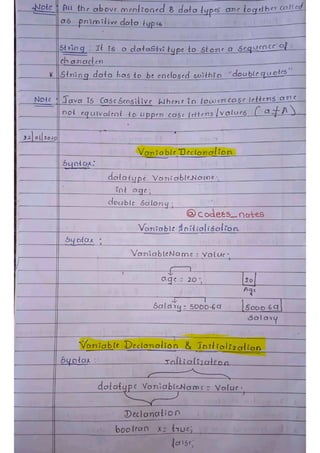 Note : All the above mentioned 8 data types are together called
as primitive data types
String : It is a datasttitype to store a sequence of
character
* String data has to be enclosed within "double quotes"
Note : Java is Case Sensitive Where in lowercase letters are
not equivalent to uppern case letters/values. (a≠A)
Variable Declaration
Syntax:
datatype VariableName;
int age;
double Salary;
@codees_notes
Variable Initialisation
Syntax :
VariableName = Value;
age = 20;
20
Age
Salary = 5000.69
5000.69
Salary
Variable Declaration & Initialization
Syntax :
Initialization
datatype VariableName = Value;
Declaration
boolean x = true;
false;